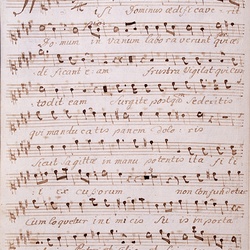 isi Dominus ædificave rit
Domum in vanum laboraverunt qui æ
dificant e am frustra vigilat qui cus
todit eam surgite postqua sederitis
qui manducatis panem Dolo ris
Sicut sagittæ in manu potentis ita fi li
i ex cusorum non confundetur
Cum loquetur inimicis su is in porta